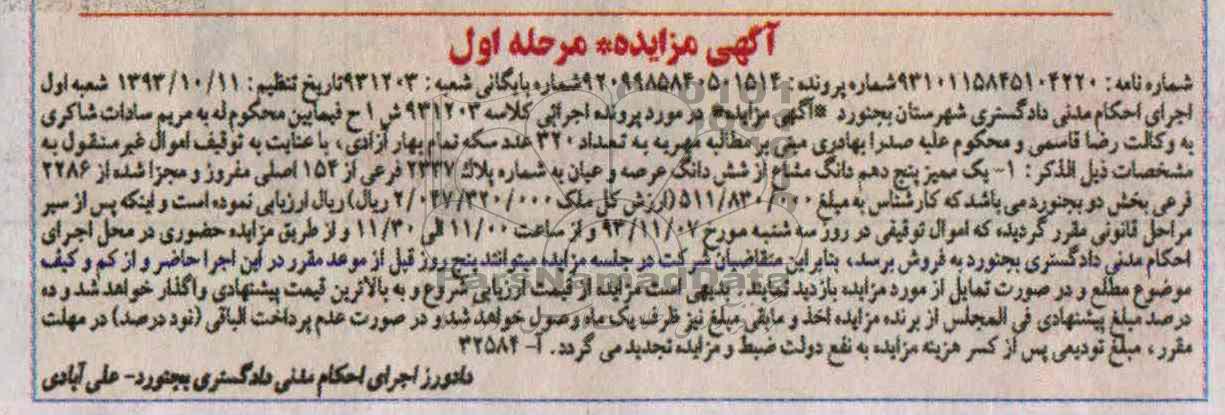 آگهی مزایده* مرحله اول
شماره نامه: ۹۳۱۰۱۱۵۸۴۵۱۰۴۲۲۰ شماره پرونده: ۹۲۰۹۹۸۵۸۴۰۵۰۱۵۱۴ شماره بایگانی شعبه: ۹۳۱۲۰۳ تاریخ تنظیم: ۱۳۹۳/۱۰/۱۱ شعبه اول
اجرای احکام مدنی دادگستری شهرستان بجنورد *آگهی مزایده* در مورد پرونده اجرائی کلاسه ۹۳۱۲۰۳ ش ۱ ح فیمابین محکوم له به مریم سادات شاکری
به وکالت رضا قاسمی و محکوم علیه صدرا بهادری مبنی بر مطالبه مهریه به تعداد ۳۲۰ عدد سکه تمام بهار آزادی، با عنایت به توقیف اموال غیرمنقول به
مشخصات ذیل الذکر: ۱- یک ممیز پنج دهم دانگ مشاع از شش دانگ عرصه و عیان به شماره پلاک ۲۳۳۷ فرعی از ۱۵۴ اصلی مفروز و مجزا شده از ۲۲۸۶
فرعی بخش دو بجنورد می باشد که کارشناس به مبلغ ۵۱۱/۸۳۰/۰۰۰ (ارزش کل ملک ۲/۰۴۷/۳۲۰/۰۰۰ ریال) ریال ارزیابی نموده است و اینکه پس از سیر
مراحل قانونی مقرر گردیده که اموال توقیفی در روز سه شنبه مورخ ۹۳/۱۱/۰۷ و از ساعت ۱۱/۰۰ الی ۱۱/۳۰ و از طریق مزایده حضوری در محل اجرای
احکام مدنی دادگستری بجنورد به فروش برسد، بنابراین متقاضیان شرکت در جلسه مزایده میتوانند پنج روز قبل از موعد مقرر در این اجرا حاضر و از کم و کیف
موضوع مطلع و در صورت تمایل از مورد مزایده بازدید نمایند. بدیهی است مزایده از قیمت ارزیابی شروع و به بالاترین قیمت پیشنهادی واگذار خواهد شد و ده
درصد مبلغ پیشنهادی فی المجلس از برنده مزایده اخذ و مابقی مبلغ نیز ظرف یک ماه وصول خواهد شد و در صورت عدم پرداخت الباقی (نود درصد) در مهلت
مقرر، مبلغ تودیعی پس از کسر هزینه مزایده به نفع دولت ضبط و مزایده تجدید می گردد. آ- ۳۲۵۸۴
دادورز اجرای احکام مدنی دادگستری بجنورد- علی آبادی
ParsNamadData